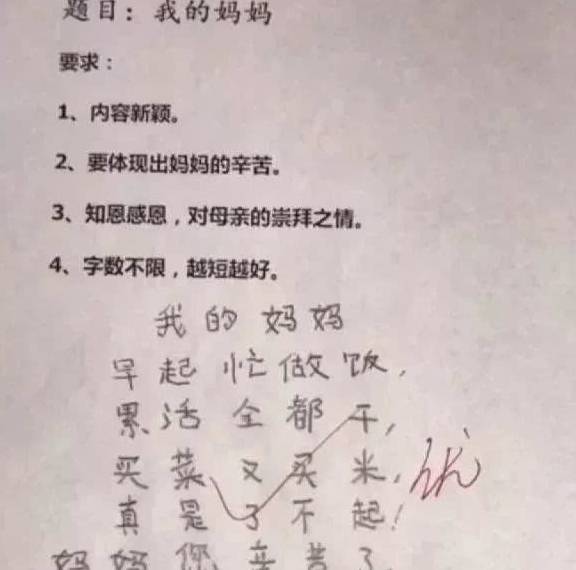 题目：我的妈妈
要求：
1、内容新颖。
2、要体现出妈妈的辛苦。
3、知恩感恩，对母亲的崇拜之情。
4、字数不限，越短越好。
我的妈妈
早起忙做饭，
累活全都干，
买菜又买米，
真是了不起！
优
妈妈您辛苦了